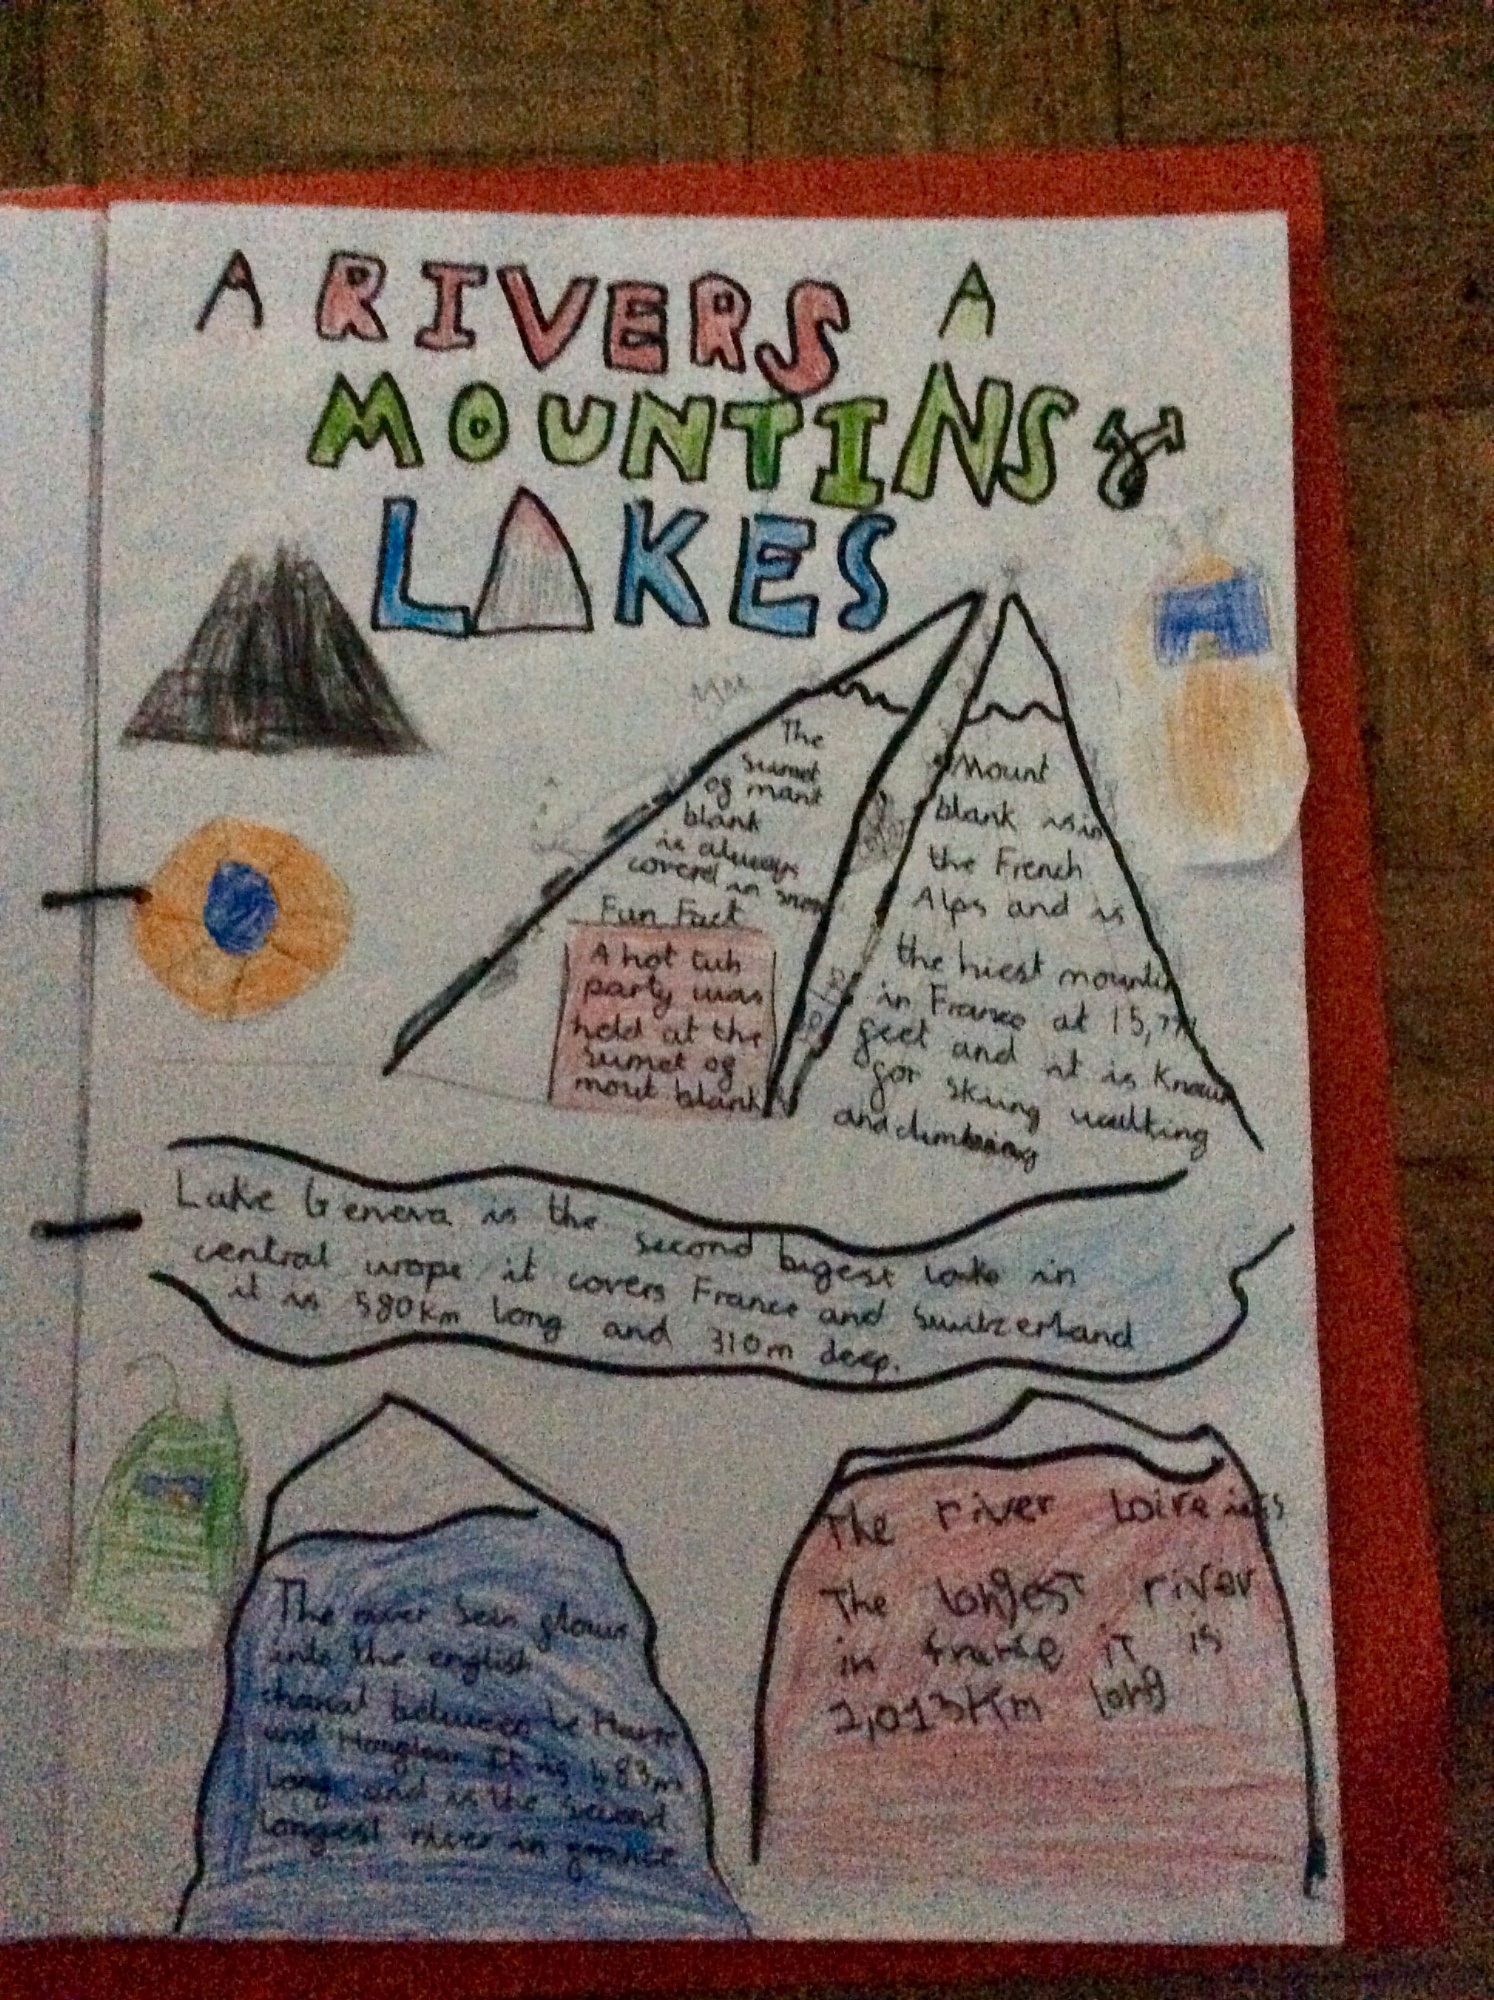 RIVERS
MOUNTINS &
LAKES
The
sumet
of mant
blank
is always
coverd in snow
Fun Fact
A hot tub
party was
held at the
sumet of
mout blank
Mount
blank is in
the French
Alps and is
the hiest mountin
in France at 15,771
feet and it is known
for skiing walking
and climbing
Lake Geneva is the second bigest lake in
central urope it covers France and Switzerland
it is 580km long and 310m deep.
The river Sein flows
into the english
chanal between le Havre
and It is 483m
long and is the second
longest river in
The river Loire is
The longest river
in france it is
2,013km long